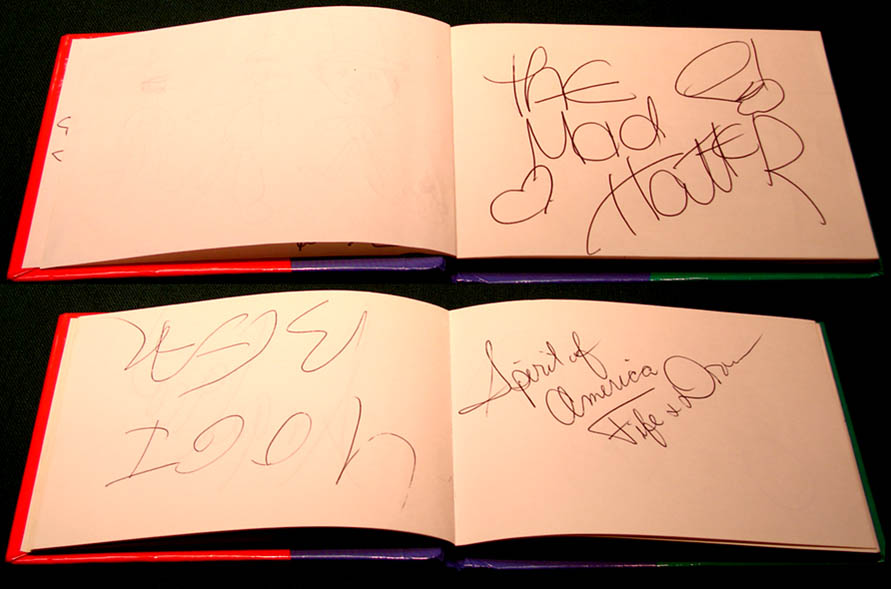 The
Mad
HattER
YOGI
BEAR
Spirit of
America
Fife & Drum